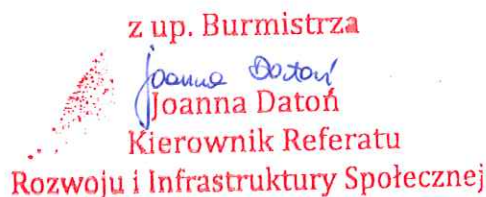 z up. Burmistrza
Joanna Datoń
Joanna Datoń
Kierownik Referatu
Rozwoju i Infrastruktury Społecznej